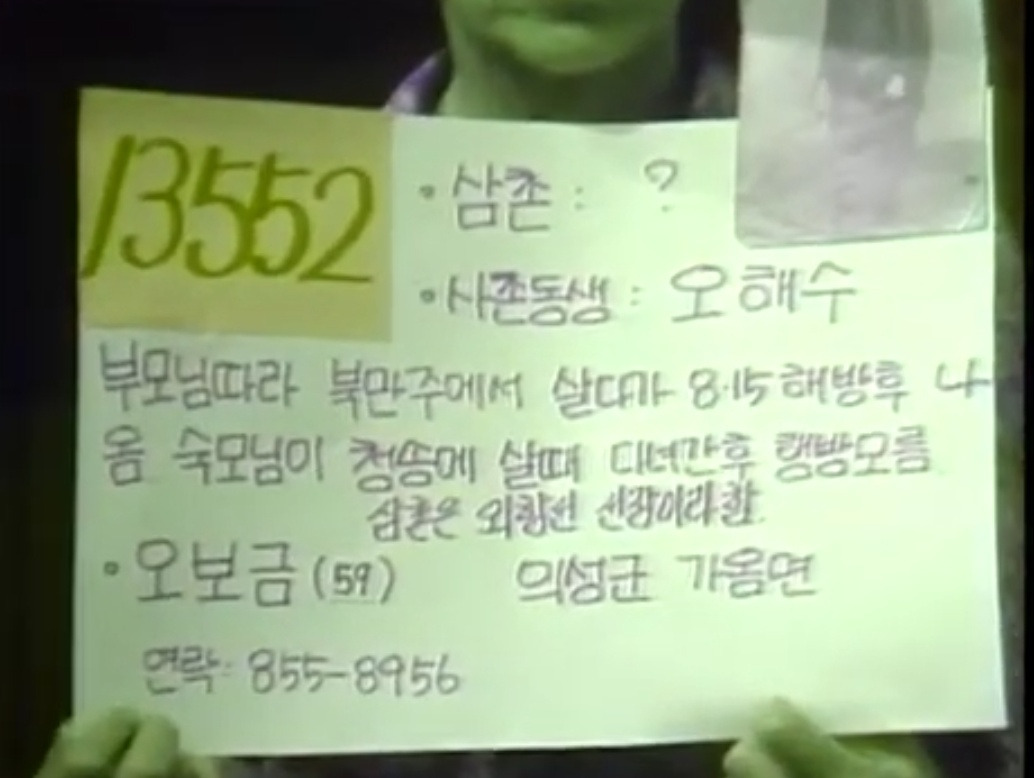 13552
· 삼촌 : ?
· 사촌동생 : 오해수
부모님따라 북만주에서 살다가 8.15 해방후 나
옴 숙모님이 청송에 살때 다녀간후 행방모름
삼촌은 외항선 선장이라함.
· 오보금 (59) 의성군 가음면
연락: 855-8956